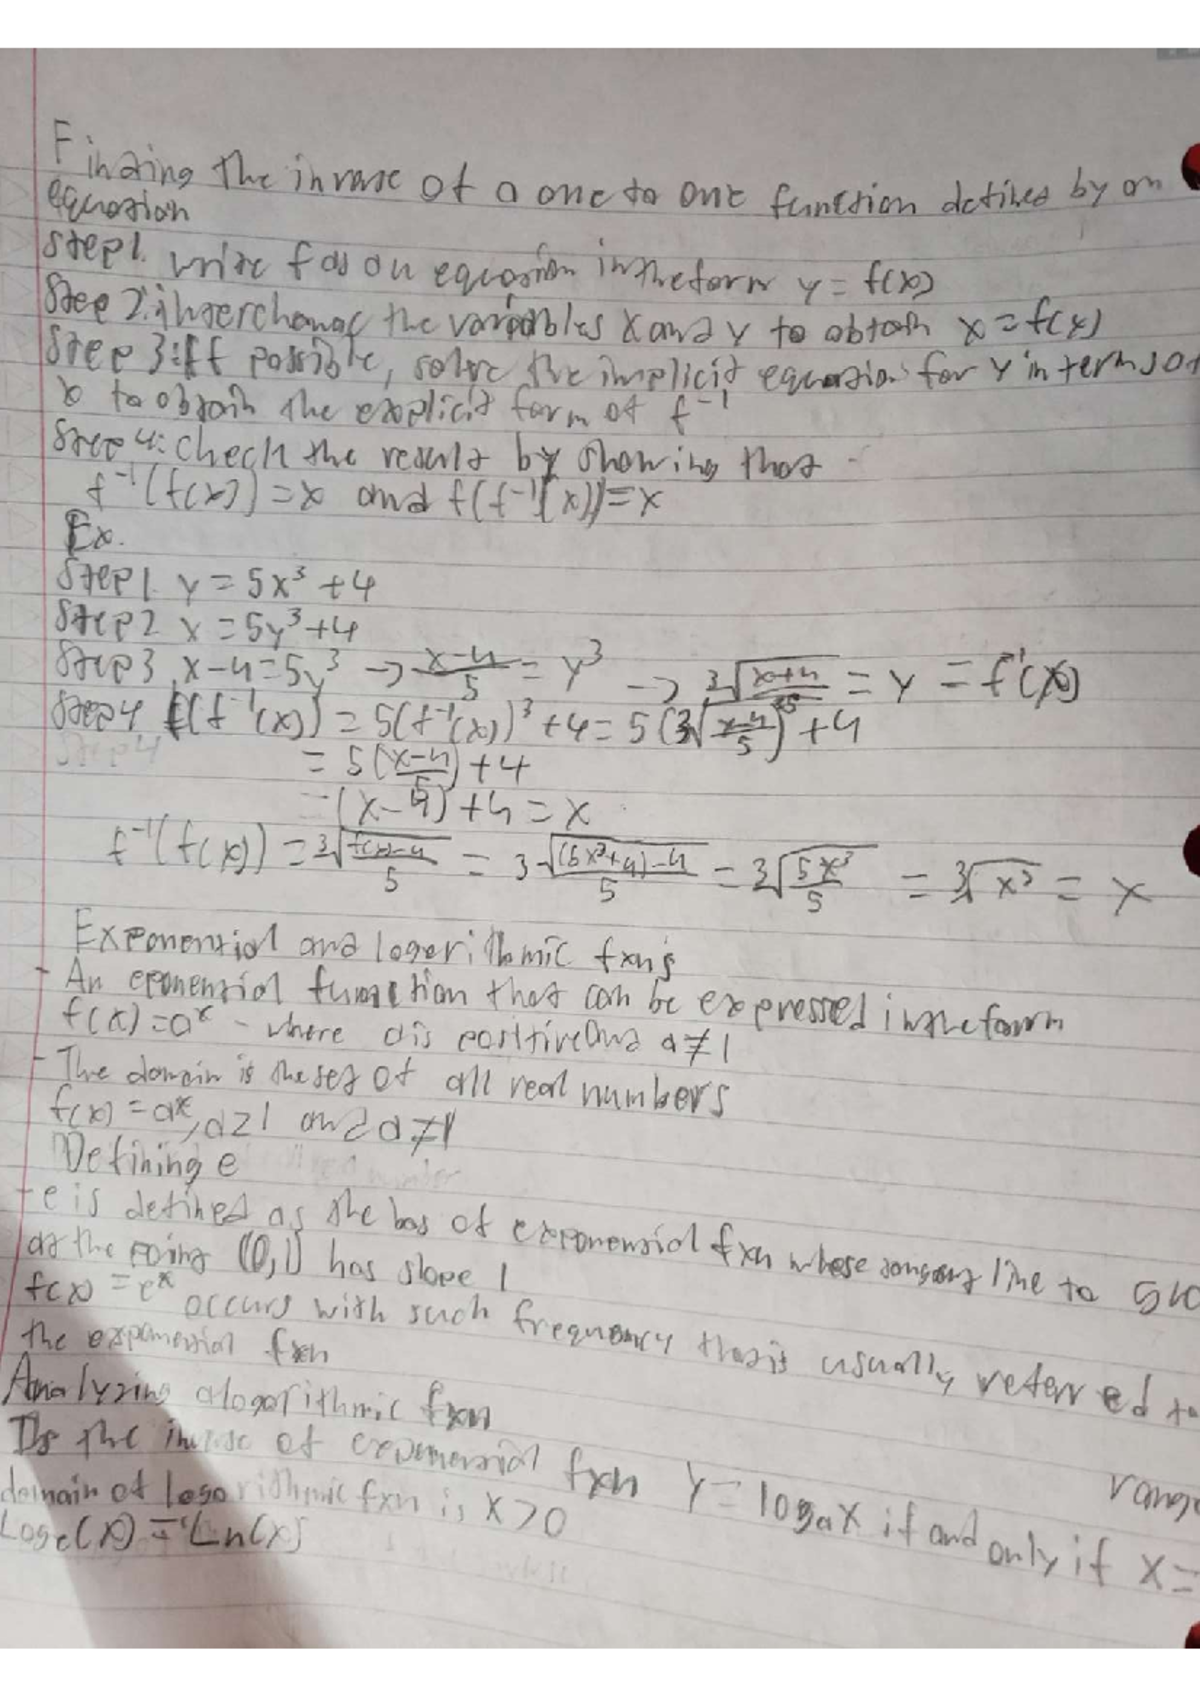 Finding the inverse of a one to one function defined by an
equation
Step 1. write f as an equation in the form y = f(x)
Step 2: interchange the variables x and y to obtain x = f(y)
Step 3: If possible, solve the implicit equation for y in terms of
x to obtain the explicit form of f⁻¹
Step 4: Check the result by showing that
f⁻¹(f(x)) = x and f(f⁻¹(x)) = x
Ex.
Step 1. y = 5x³ + 4
Step 2 x = 5y³ + 4
Step 3 x - 4 = 5y³ → (x-4)/5 = y³ → ³√((x+4)/5) = y = f⁻¹(x)
Step 4 f(f⁻¹(x)) = 5(f⁻¹(x))³ + 4 = 5(³√((x-4)/5))³ + 4
= 5((x-4)/5) + 4
= (x-4) + 4 = x
f⁻¹(f(x)) = ³√((f(x)-4)/5) = ³√(((5x³+4)-4)/5) = ³√(5x³/5) = ³√x³ = x
Exponential and logerithmic fxn's
- An exponential function that can be expressed in the form
f(x) = aˣ - where a is positive and a ≠ 1
- The domain is the set of all real numbers
f(x) = aˣ, a ≥ 1 and a ≠ 1
Defining e
- e is defined as the bas of exponensial fxn whose tangent line to
at the point (0,1) has slope 1
f(x) = eˣ occurs with such frequency that is usually referred to
the exponential fxn
Analyzing a logarithmic fxn
Is the inverse of exponensial fxn y = logₐx if and only if x =
range
domain of logarithmic fxn is x > 0
Logₑ(x) = Ln(x)